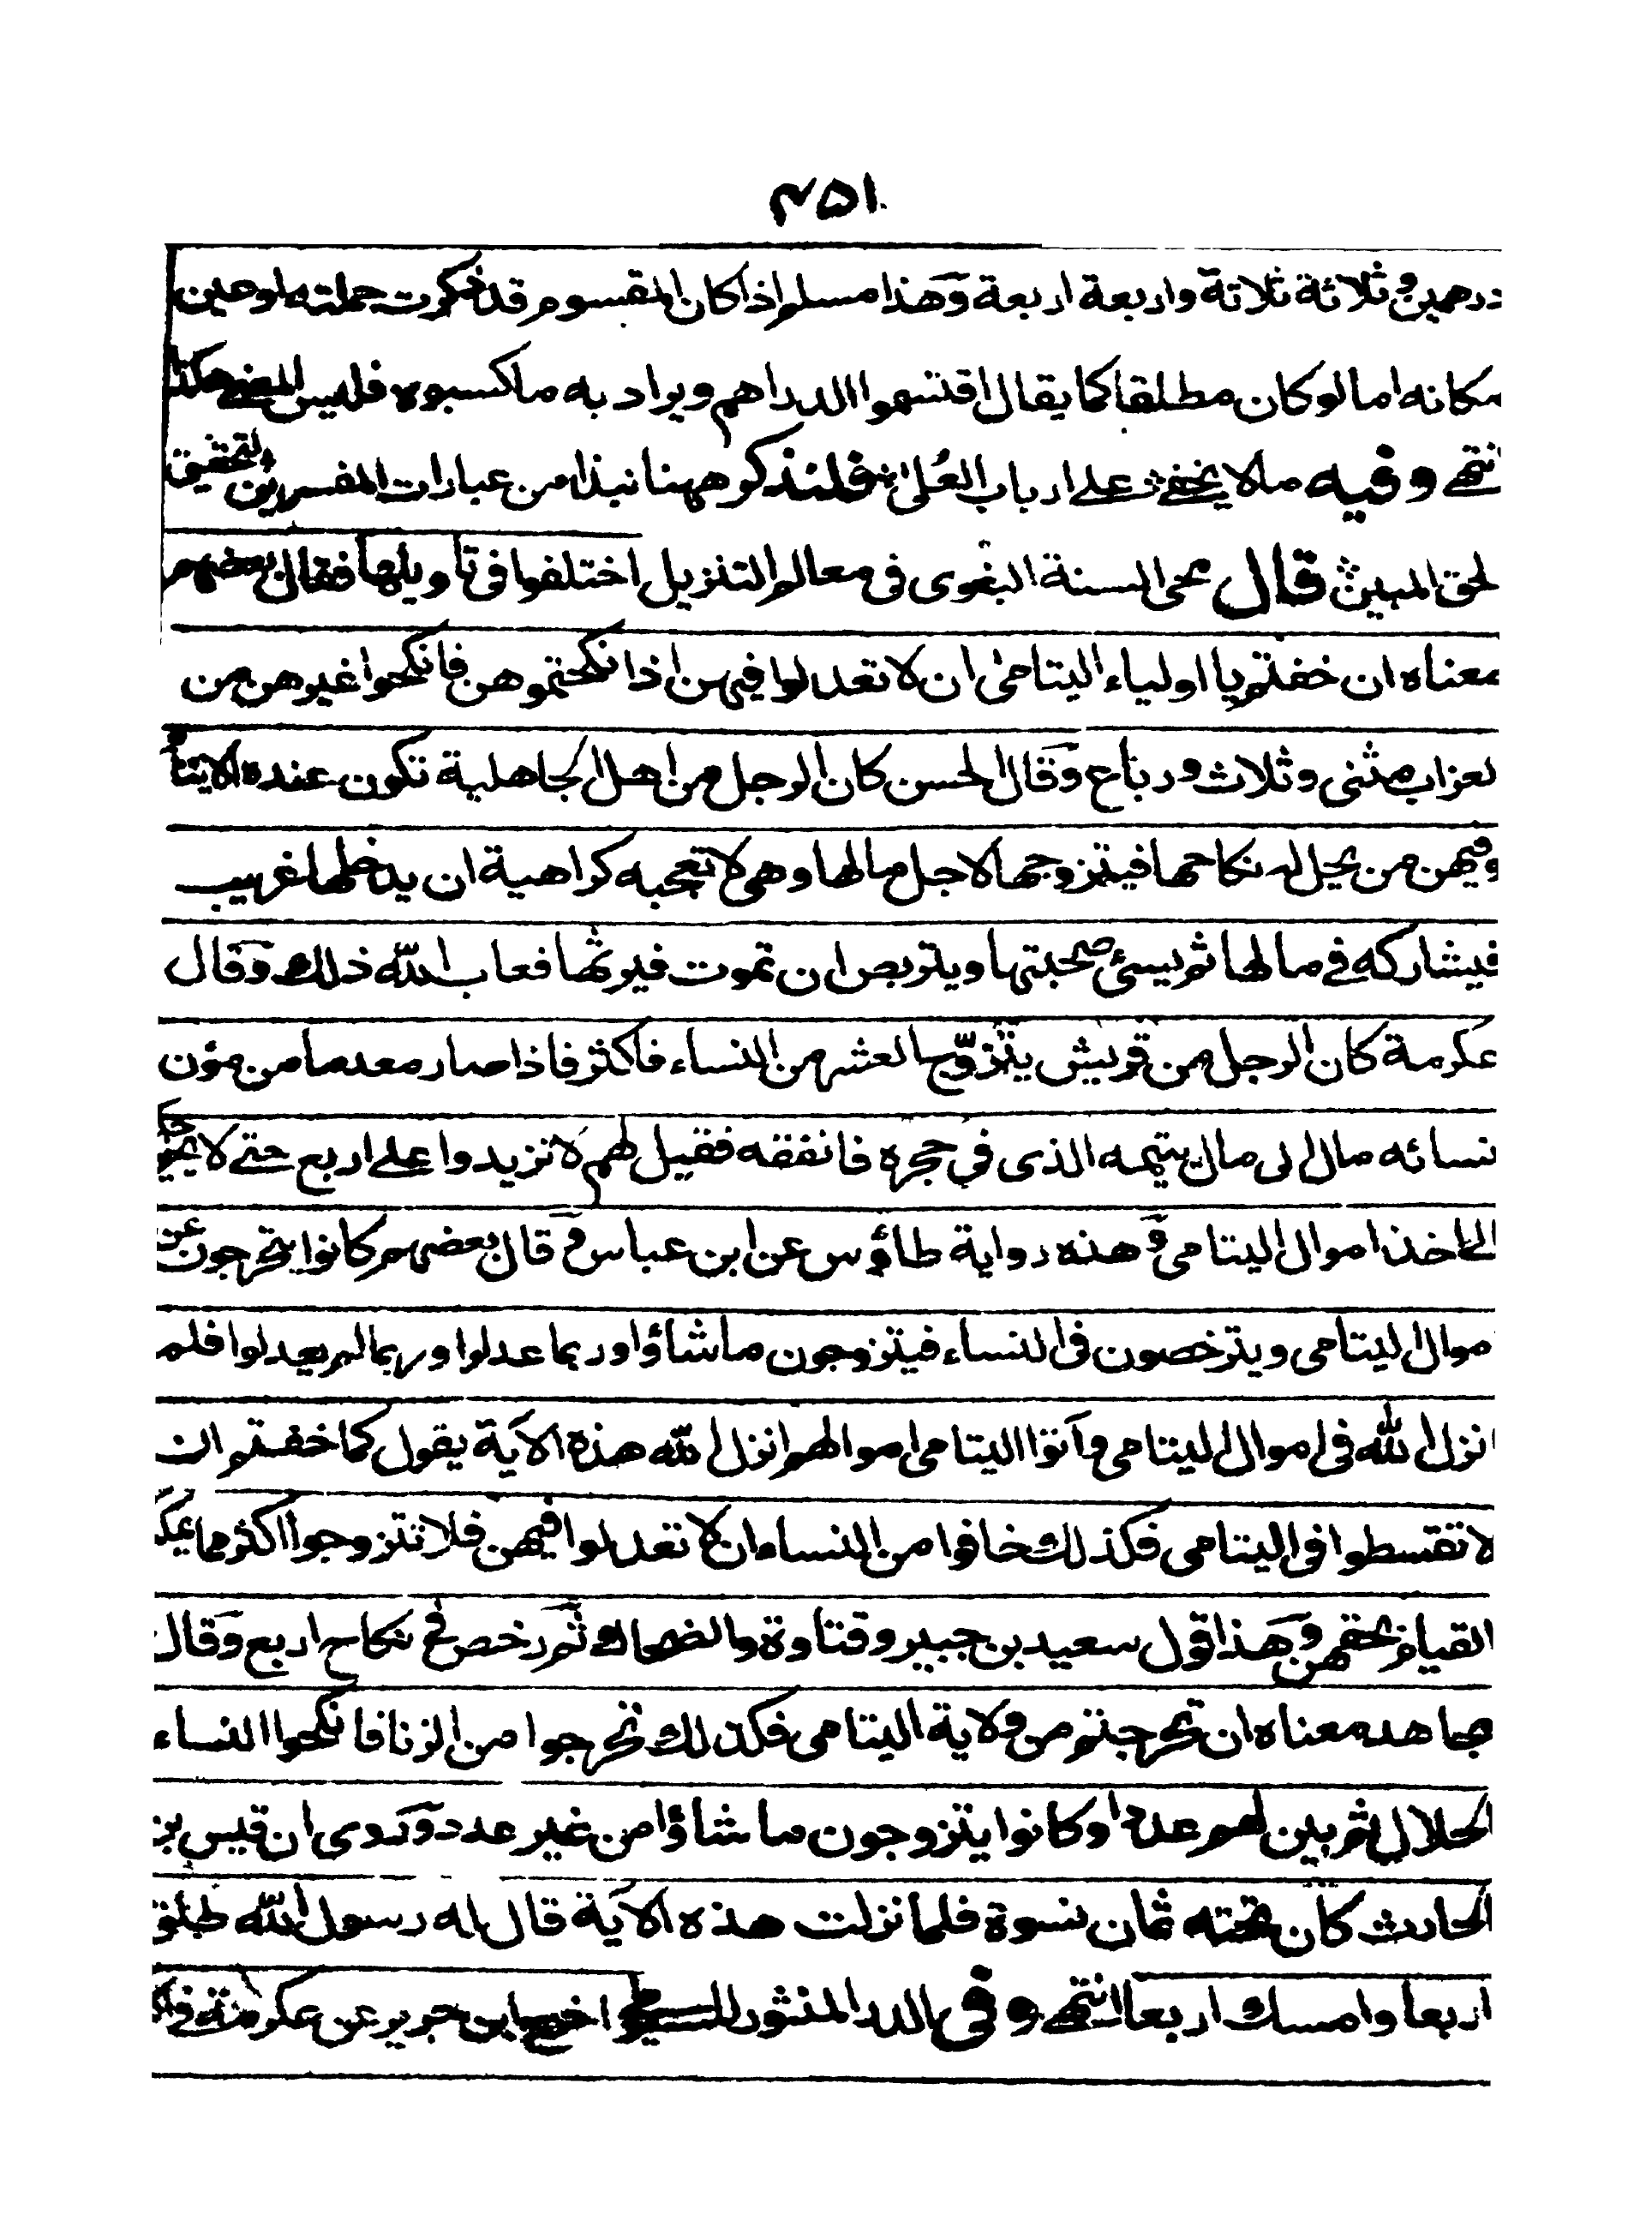 ۴۵۱
درهمين وثلاثة ثلاثة واربعة اربعة وهذا مسلم اذا كان المقسوم قد ذكرت جملته اوعين
مكانه اما لو كان مطلقا كما يقال اقتسموا الدراهم ويراد به ما كسبوه فليس المعنى هكذا
انتهى وفيه ما لا يخفى على ارباب العلى فلنذكر ههنا نبذا من عبارات المفسرين لتحقيق
لحق المبين قال محى السنة البغوى فى معالم التنزيل اختلفوا فى تأويلها فقال بعضهم
معناه ان خفتم يا اولياء اليتامى ان لا تعدلوا فيهن اذا نكحتموهن فانكحوا غيرهن من
لعزاب مثنى وثلاث ورباع وقال الحسن كان الرجل من اهل الجاهلية تكون عنده الايتام
وفيهن من يحل له نكاحها فيتزوجها لاجل مالها وهى لا تعجبه كراهية ان يدخلها غريب
فيشاركه فى مالها ثم يسئ صحبتها ويتربص ان تموت فيرثها فعاب الله ذلك وقال
عكرمة كان الرجل من قريش يتزوّج العشر من النساء فاكثر فاذا صار معدما من مؤن
نسائه مال الى مال يتيمه الذى فى حجره فانفقه فقيل لهم لا تزيدوا على اربع حتى لا
الى اخذ اموال اليتامى وهذه رواية طاؤس عن ابن عباس وقال بعضهم كانوا يتحرجون عن
موال اليتامى ويترخصون فى النساء فيتزوجون ما شاؤا وربما عدلوا وربما لم يعدلوا فلما
انزل الله فى اموال اليتامى وآتوا اليتامى اموالهم انزل الله هذه الآية يقول كما خفتم ان
لا تقسطوا فى اليتامى فكذلك خافوا من النساء ان لا تعدلوا فيهن فلا تتزوجوا اكثر مما يمكنكم
القيام بحقهن وهذا قول سعيد بن جبير وقتادة والضحاك ثم رخص فى نكاح اربع وقال
مجاهد معناه ان تحرجتم من ولاية اليتامى فكذلك تحرجوا من الزنا فانكحوا النساء
الحلال ثم بين لهم عددا وكانوا يتزوجون ما شاؤا من غير عدد وروى ان قيس بن
الحارث كان تحته ثمان نسوة فلما نزلت هذه الآية قال له رسول الله طلق
اربعا وامسك اربعا انتهى وفى الدر المنثور للسيوطى اخرج ابن جرير عن عكرمة